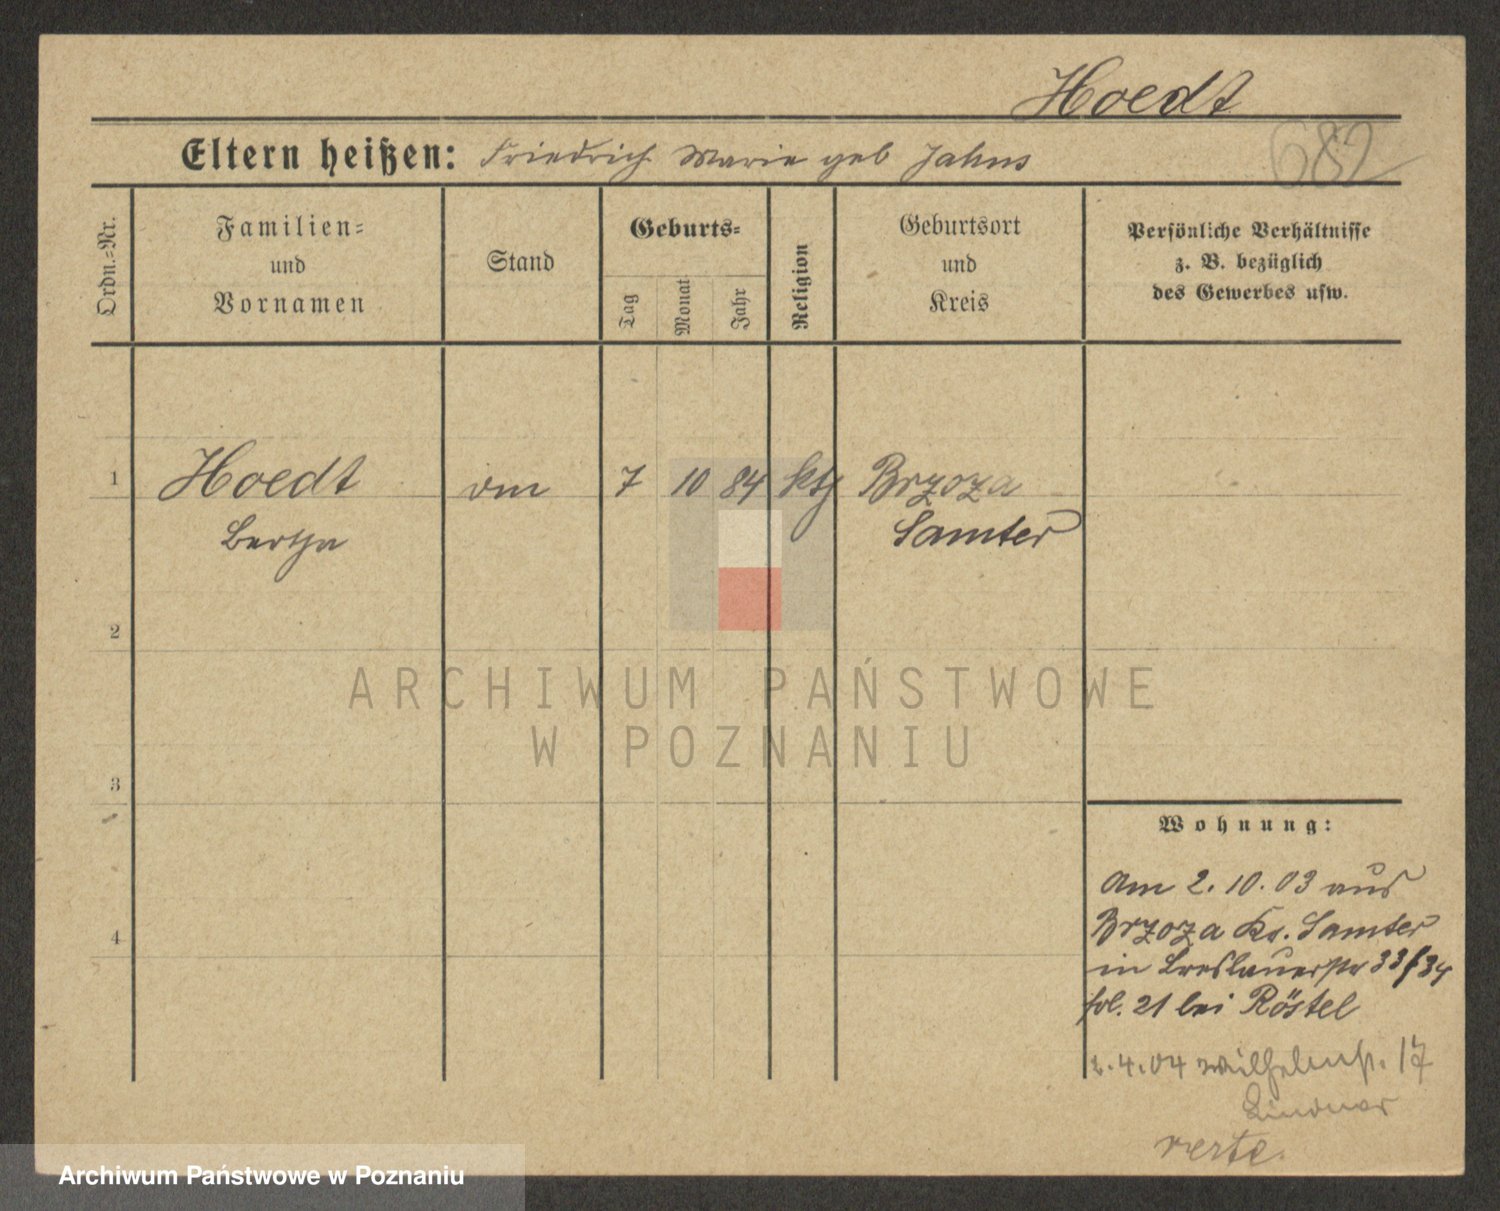 Hoedt
682
Eltern heißen: Friedrich Marie geb Jahns
Ordn.-Nr.
Familien-
und
Vornamen
Stand
Geburts-
Tag
Monat
Jahr
Religion
Geburtsort
und
Kreis
Persönliche Verhältnisse
z. B. bezüglich
des Gewerbes usw.
1
Hoedt
7 10 84
Brzoza
Bertha
Samter
2
ARCHIWUM PAŃSTWOWE
W POZNANIU
3
Wohnung:
Am 2. 10. 03 aus
4
Brzoza Ks. Samter
in Breslauerstr 33/34
fol. 21 bei Röstel
2.4.04 Wilhelmstr. 17
Lindner
verte.
Archiwum Państwowe w Poznaniu